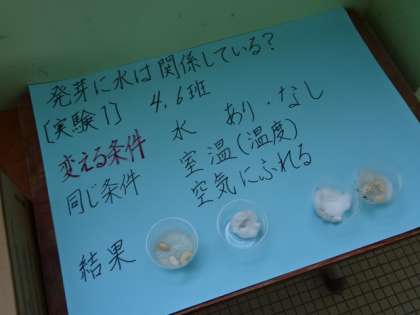 発芽に水は関係している?
[実験1] 4,6班
変える条件 水 あり・なし
同じ条件 室温(温度)
空気にふれる
結果